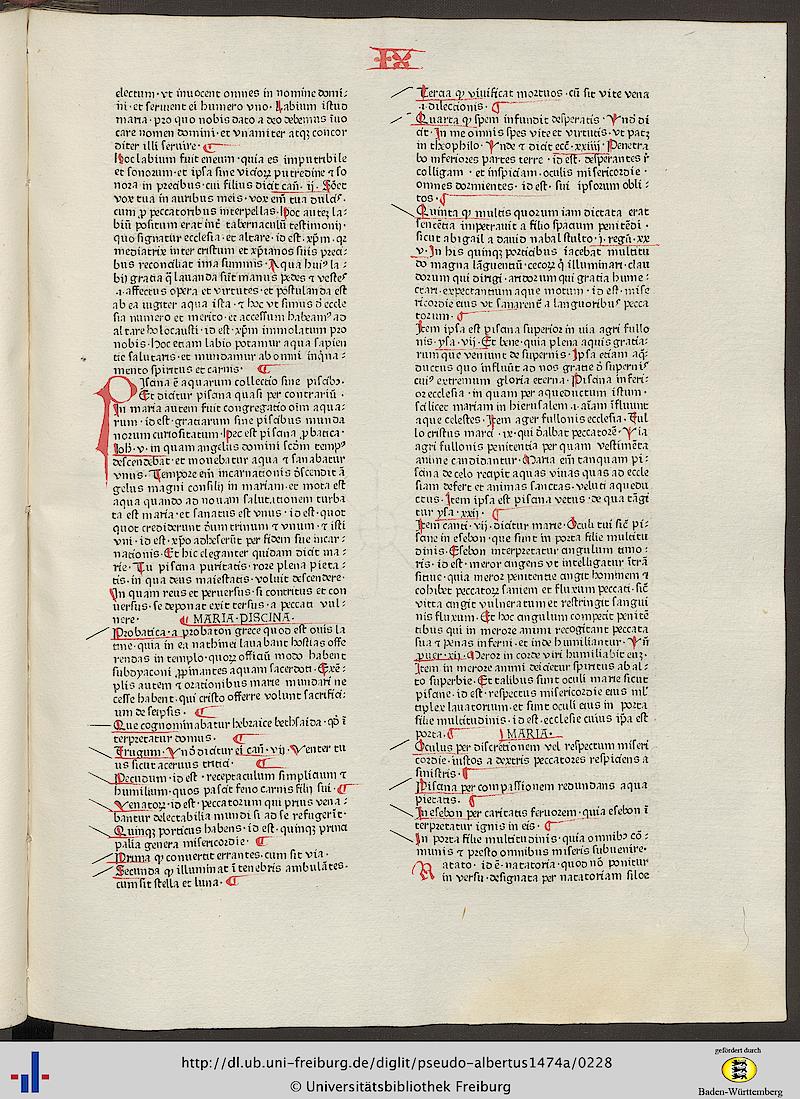 IX
electum· vt inuocent omnes in nomine domi⸗
ni· et seruient ei humero vno· Labium istud
maria· pro quo nobis dato a deo debemus inuo
care nomen domini· et vnamiter atqꝫ concor
diter illi seruire·
Hoc labium fuit eneum· quia es imputribile
et sonorum· et ipsa sine vicioꝝ putredine ⁊ so
nora in precibus· cui filius dicit cañ· ij· Sōet
vox tua in auribus meis· vox em̄ tua dulcꝭ·
cum ꝓ peccatoribus interpellas· Hoc auteꝫ la⸗
biū positum erat int̄ tabernaculū testimonij·
quo signatur ecclesia· et altare· id est· xp̄m· qꝛ
mediatrix inter cristum et xp̄ianos suis preci⸗
bus reconciliat ima summis· Aqua huiꝰ la⸗
bij gratia q̄ lauanda sūt manus pedes ⁊ vestes
·i· affectus opera et virtutes· et postulanda est
ab ea iugiter aqua ista· ⁊ hoc vt simus d̄ eccle
sia numero et merito· et accessum habeamꝰ ad
altare holocausti· id est· xp̄m immolatum pro
nobis· Hoc etiam labio potamur aqua sapien
tie salutaris· et mundamur ab omni inq̇na⸗
mento spiritus et carnis·
Piscina ē aquarum collectio sine piscibꝰ·
Et dicitur piscina quasi per contrariū·
In maria autem fuit congregatio oīm aqua⸗
rum· id est· gratiarum sine piscibus munda
norum curiositatum· Hec est piscina ꝓbatica·
Ioh· v· in quam angelus domini scd̄m tempꝰ
descendebat· et mouebatur aqua ⁊ sanabatur
vnus· Tempore em̄ incarnationis d̄scendit ā
gelus magni consilij in mariam· et mota est
aqua quando ad nouam salutationem turba
ta est maria· et sanatus est vnus· id est· quot
quot crediderunt d̄um trinum ⁊ vnum· ⁊ isti
vni· id est· xp̄o adheserūt per fidem sue incar⸗
nationis· Et hic eleganter quidam dicit ma⸗
rie· Tu piscina puritatis· rore plena pieta⸗
tis· in qua deus maiestatis· voluit descendere·
In quam reus et peruersus· si contritus et con
uersus· se deponat exit tersus· a peccati vul⸗
nere· MARIA· PISCINA·
Probatica· a probaton grece quod est ouis la
tine· quia in ea nathinei lauabant hostias offe
rendas in templo· quoꝝ officiū modo habent
subdyaconi ꝓpinantes aquam sacerdoti· Exē⸗
plis autem ⁊ orationibus marie mundari ne
cesse habent· qui cristo offerre volunt sacrifici⸗
um de seipsis·
Que cognominabatur hebraice bethsaida· qd̄ ī
terpretatur domus·
Frugum· Vn̄ dicitur ei cañ· vij· Venter tu
us sicut aceruus tritici·
Pecudum· id est· receptaculum simplicium ⁊
humilium· quos pascit feno carnis filij sui·
Venatoꝝ· id est· peccatorum qui prius vena⸗
bantur delectabilia mundi si ad se refugerīt·
Quinqꝫ porticus habens· id est· quinqꝫ princi
palia genera misericordie·
Prima qꝛ conuertit errantes· cum sit via·
Secunda qꝛ illuminat ī tenebris ambulātes·
cum sit stella et luna·
Tercia qꝛ viuificat mortuos· cū sit vite vena
·i· dileccionis·
Quarta qꝛ spem infundit desperatis· Vn̄ di
cit· In me omnis spes vite et virtutis· vt patꝫ
in theophilo· Vnde ⁊ dicit ecc̄· xxiiij· Penetra
bo inferiores partes terre· id est· desperantes
colligam· et inspiciam· oculis misericordie·
omnes dormientes· id est· sui ipsorum obli⸗
tos·
Quinta qꝛ multis quorum iam dictata erat
sentētia impetrauit a filio spacium penitēdi·
sicut abigail a dauid nabal stulto· j· regū· xx
v· In his quinqꝫ porticibus iacebat multitu
do magna lāguentiū· cecoꝝ q̄ illuminari· clau
dorum qui dirigi· aridorum qui gratia hume⸗
ctari· expectantium aque motum· id est· mise
ricordie eius vt sanarent̄ a languoribꝰ pecca
torum·
Item ipsa est piscina superior in uia agri fullo
nis· ysa· vij· Et bene· quia plena aquis gratia⸗
rum que veniunt de supernis· Ipsa etiam aq̄⸗
ductus quo influūt ad nos gratie d̄ supernis
cuiꝰ extremum gloria eterna· Piscina inferi⸗
or ecclesia· in quam per aqueductum istum·
scilicet mariam in hierusalem ·i· aīam īfluunt
aque celestes· Item ager fullonis ecclesia· Ful
lo cristus marci· ix· qui d̄albat peccatorē· Via
agri fullonis penitentia per quam vestimēta
anime candidantur· Maria em̄ tanquam pi⸗
scina de celo recipit aquas viuas quas ad eccle
siam defert et animas sanctas· veluti aquedu
ctus· Item ipsa est piscina vetus· de qua tāgi
tur ysa· xxij·
Item canti· vij· dicitur marie· Oculi tui sic̄ pi⸗
scine in esebon· que sunt in porta filie multitu
dinis· Esebon interpretatur angulum timo⸗
ris· id est· meror angens vt intelligatur ītrā
sitiue· quia meror penitentie angit hominem ⁊
cohibet peccatoꝝ saniem et fluxum peccati· sic̄
vitta angit vulneratum et restringit sangui
nis fluxum· Et hoc angulum competit penitē
tibus qui in merore animi recogitant peccata
sua ⁊ penas inferni· et inde humiliantur· Vn̄
puer· xij· Meror in corde viri humiliabit euꝫ·
Item in merore animi deicietur spiritus ab al⸗
to superbie· Et talibus sunt oculi marie sicut
piscine· id est· respectus misericordie eius ml̄
tiplex lauatorium· et sunt oculi eius in porta
filie multitudinis· id est· ecclesie cuius ip̄a est
porta· MARIA·
Oculus per discretionem vel respectum miseri
cordie· iustos a dextris peccatores respiciens a
sinistris·
Piscina per compassionem redundans aqua
pietatis·
In esebon per caritatis feruorem· quia esebon ī
terpretatur ignis in eis·
In porta filie multitudinis· quia omnibꝰ cō⸗
munis ⁊ presto omnibus miseris subuenire·
Natato· id ē· natatoria· quod nō ponitur
in versu· designata per natatoriam siloe
http://dl.ub.uni-freiburg.de/diglit/pseudo-albertus1474a/0228
© Universitätsbibliothek Freiburg
gefördert durch
Baden-Württemberg